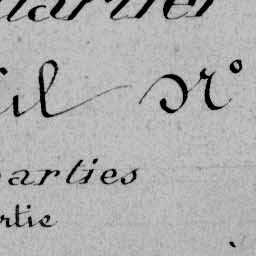 uartier
il N°
parties
rtie